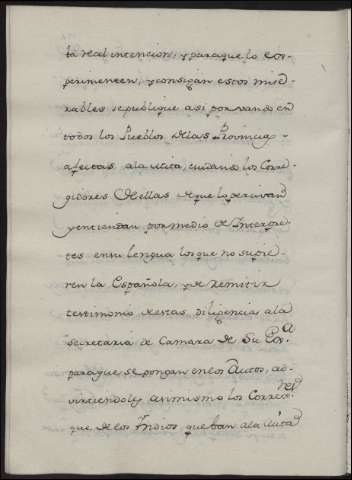 ta real intencion, y para que lo ex-
perimenten, y consigan estos mise-
rables se publique asi por vando en
todos los Pueblos de las Provincias
afectas a la Mita, cuidando los Corre-
gidores de ellas de que lo perciban
y entiendan por medio de Interpre-
tes en su lengua los que no supie-
ren la Española, y de remitir
testimonio de estas diligencias a la
Secretaria de Camara de Su Exa
para que se pongan en los Autos, ad-
virtiendoles asimismo los Corregres
que de los Indios que van a la Mita